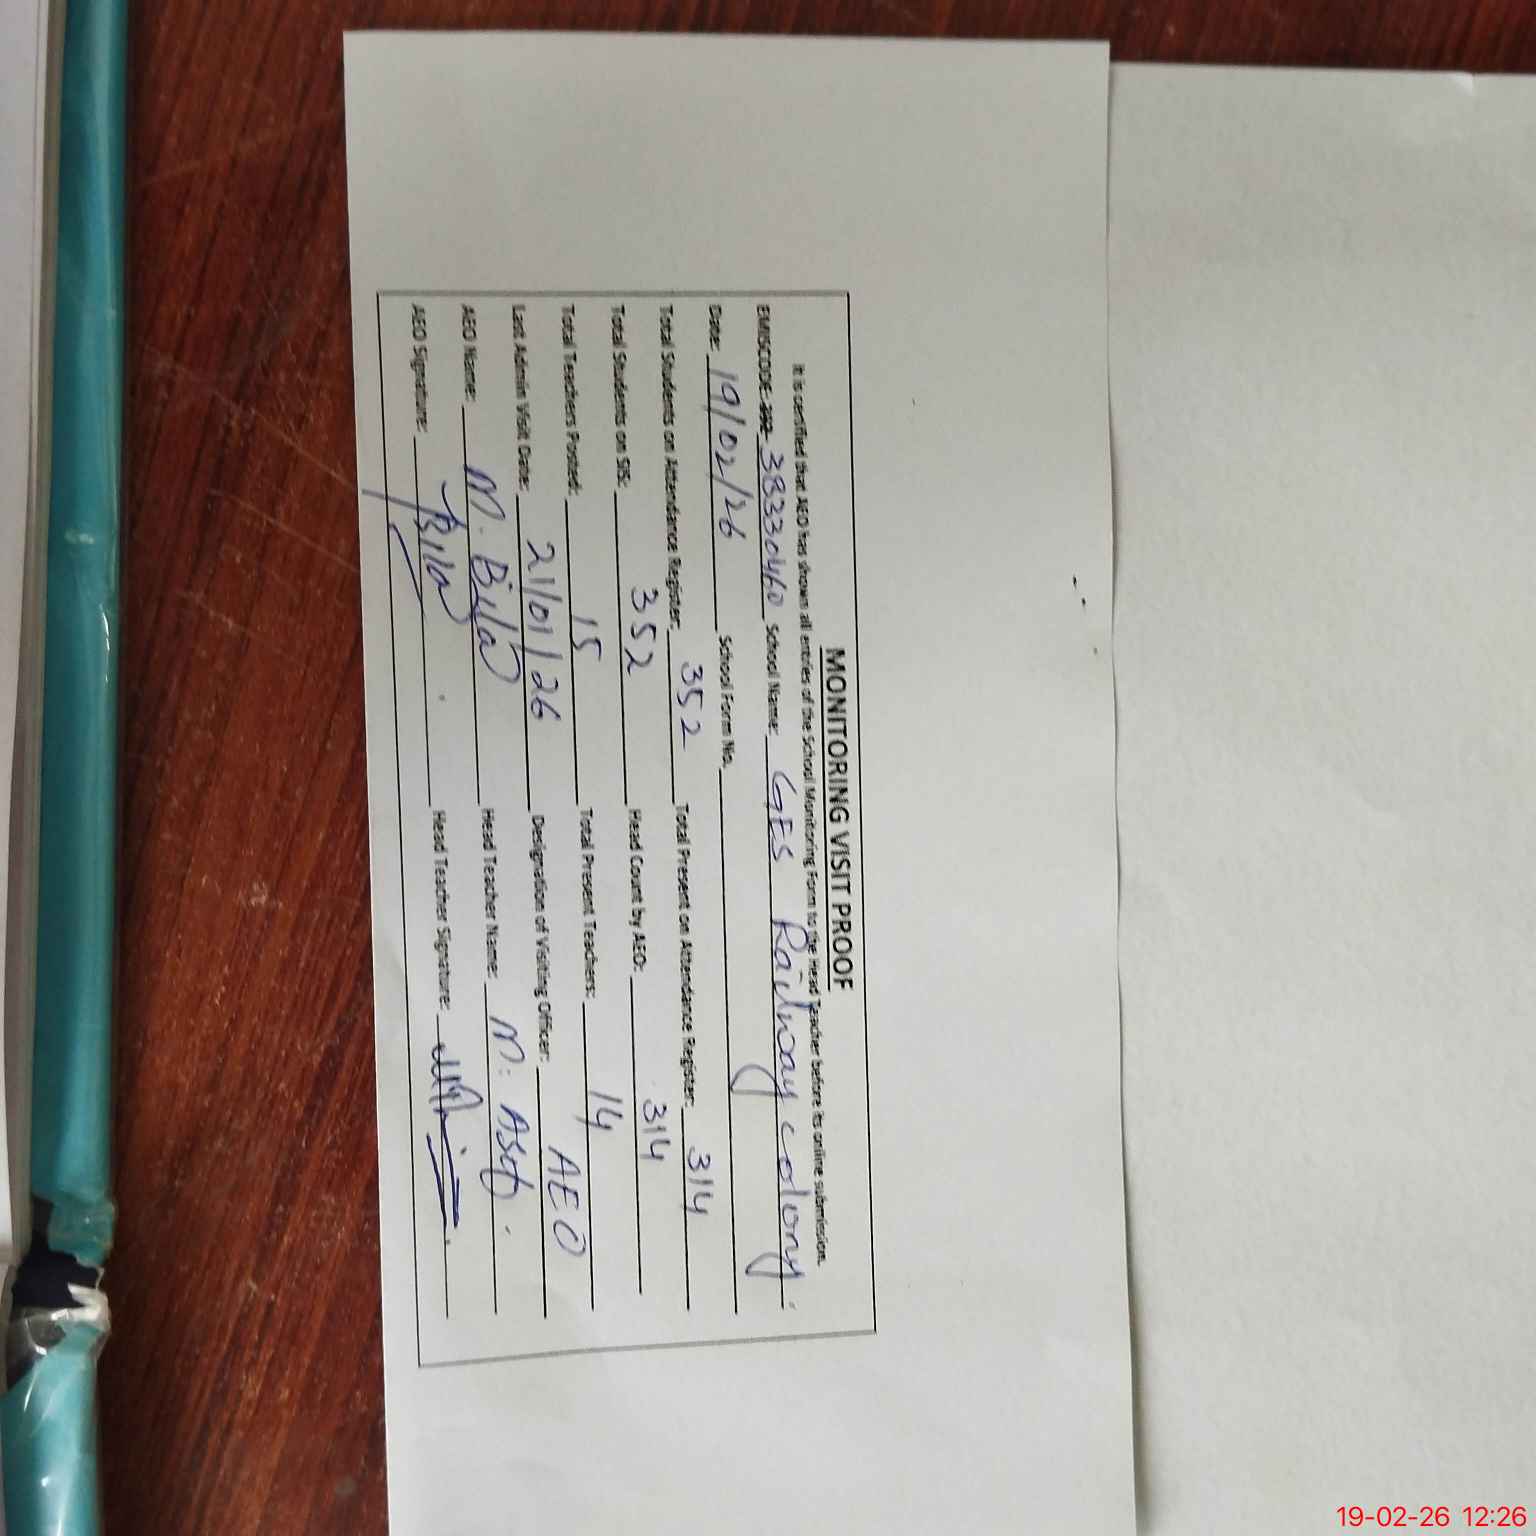 MONITORING VISIT PROOF
It is certified that AEO has shown all entries of the School Monitoring Form to the Head Teacher before its online submission.
EMISCODE: 38330460 School Name: GES Railway colony.
Date: 19/02/26 School Form No.
Total Students on Attendance Register: 352 Total Present on Attendance Register: 314
Total Students on SIS: 352 Head Count by AEO: 314
Total Teachers Posted: 15 Total Present Teachers: 14
Last Admin Visit Date: 21/01/26 Designation of Visiting Officer: AEO
AEO Name: M. Bilal Head Teacher Name: M.
AEO Signature: Bilal Head Teacher Signature:
19-02-26 12:26